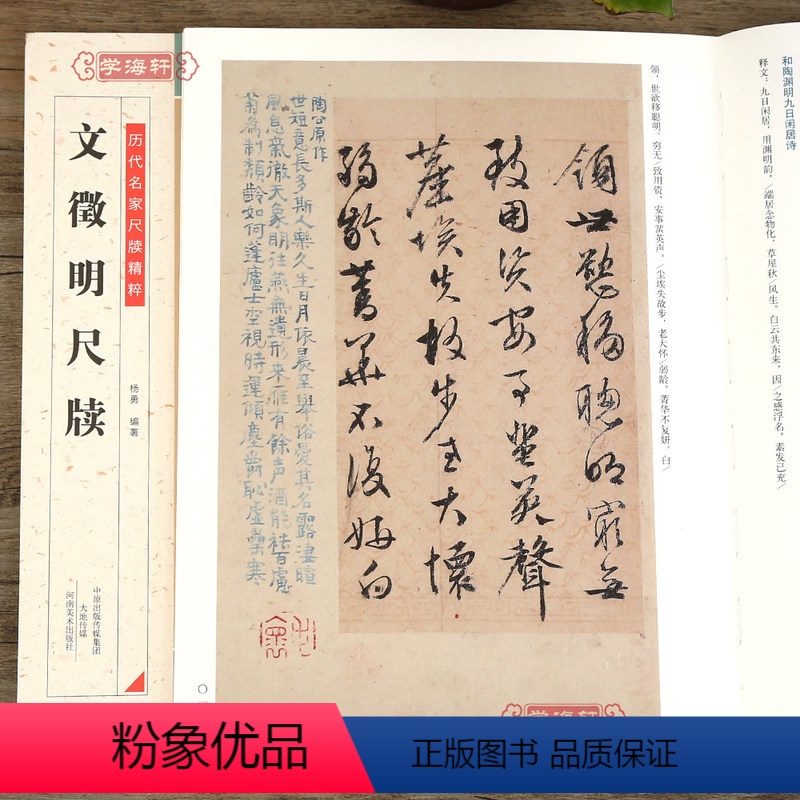 学海轩
历代名家尺牍精粹
文徵明尺牍
杨勇 编著
中原出版传媒集团
大地传媒
河南美术出版社
和陶渊明九日闲居诗
释文：九日闲居，用渊明韵。／端居念物化，草屋秋／风生。白云共东来，因／之感浮名。素发已充／
领，世欲移聪明。穷无／致用资，安事蜚英声。／尘埃失故步，老大怀／弱龄。菁华不复妍，白／
領世慾移聰明窮無
致用資安事蜚英聲
塵埃失故步老大懷
弱齡菁華不復妍白
陶公原作
世短意長多斯人樂久生日月依晨至舉俗愛其名露淒暄
風息氣澈天象明往燕無遺形来雁有餘声酒能祛百慮
菊為制頹齡如何蓬廬士空視時運傾塵爵恥虛罍寒
学海轩
粉象优品
正版图书 品质保证